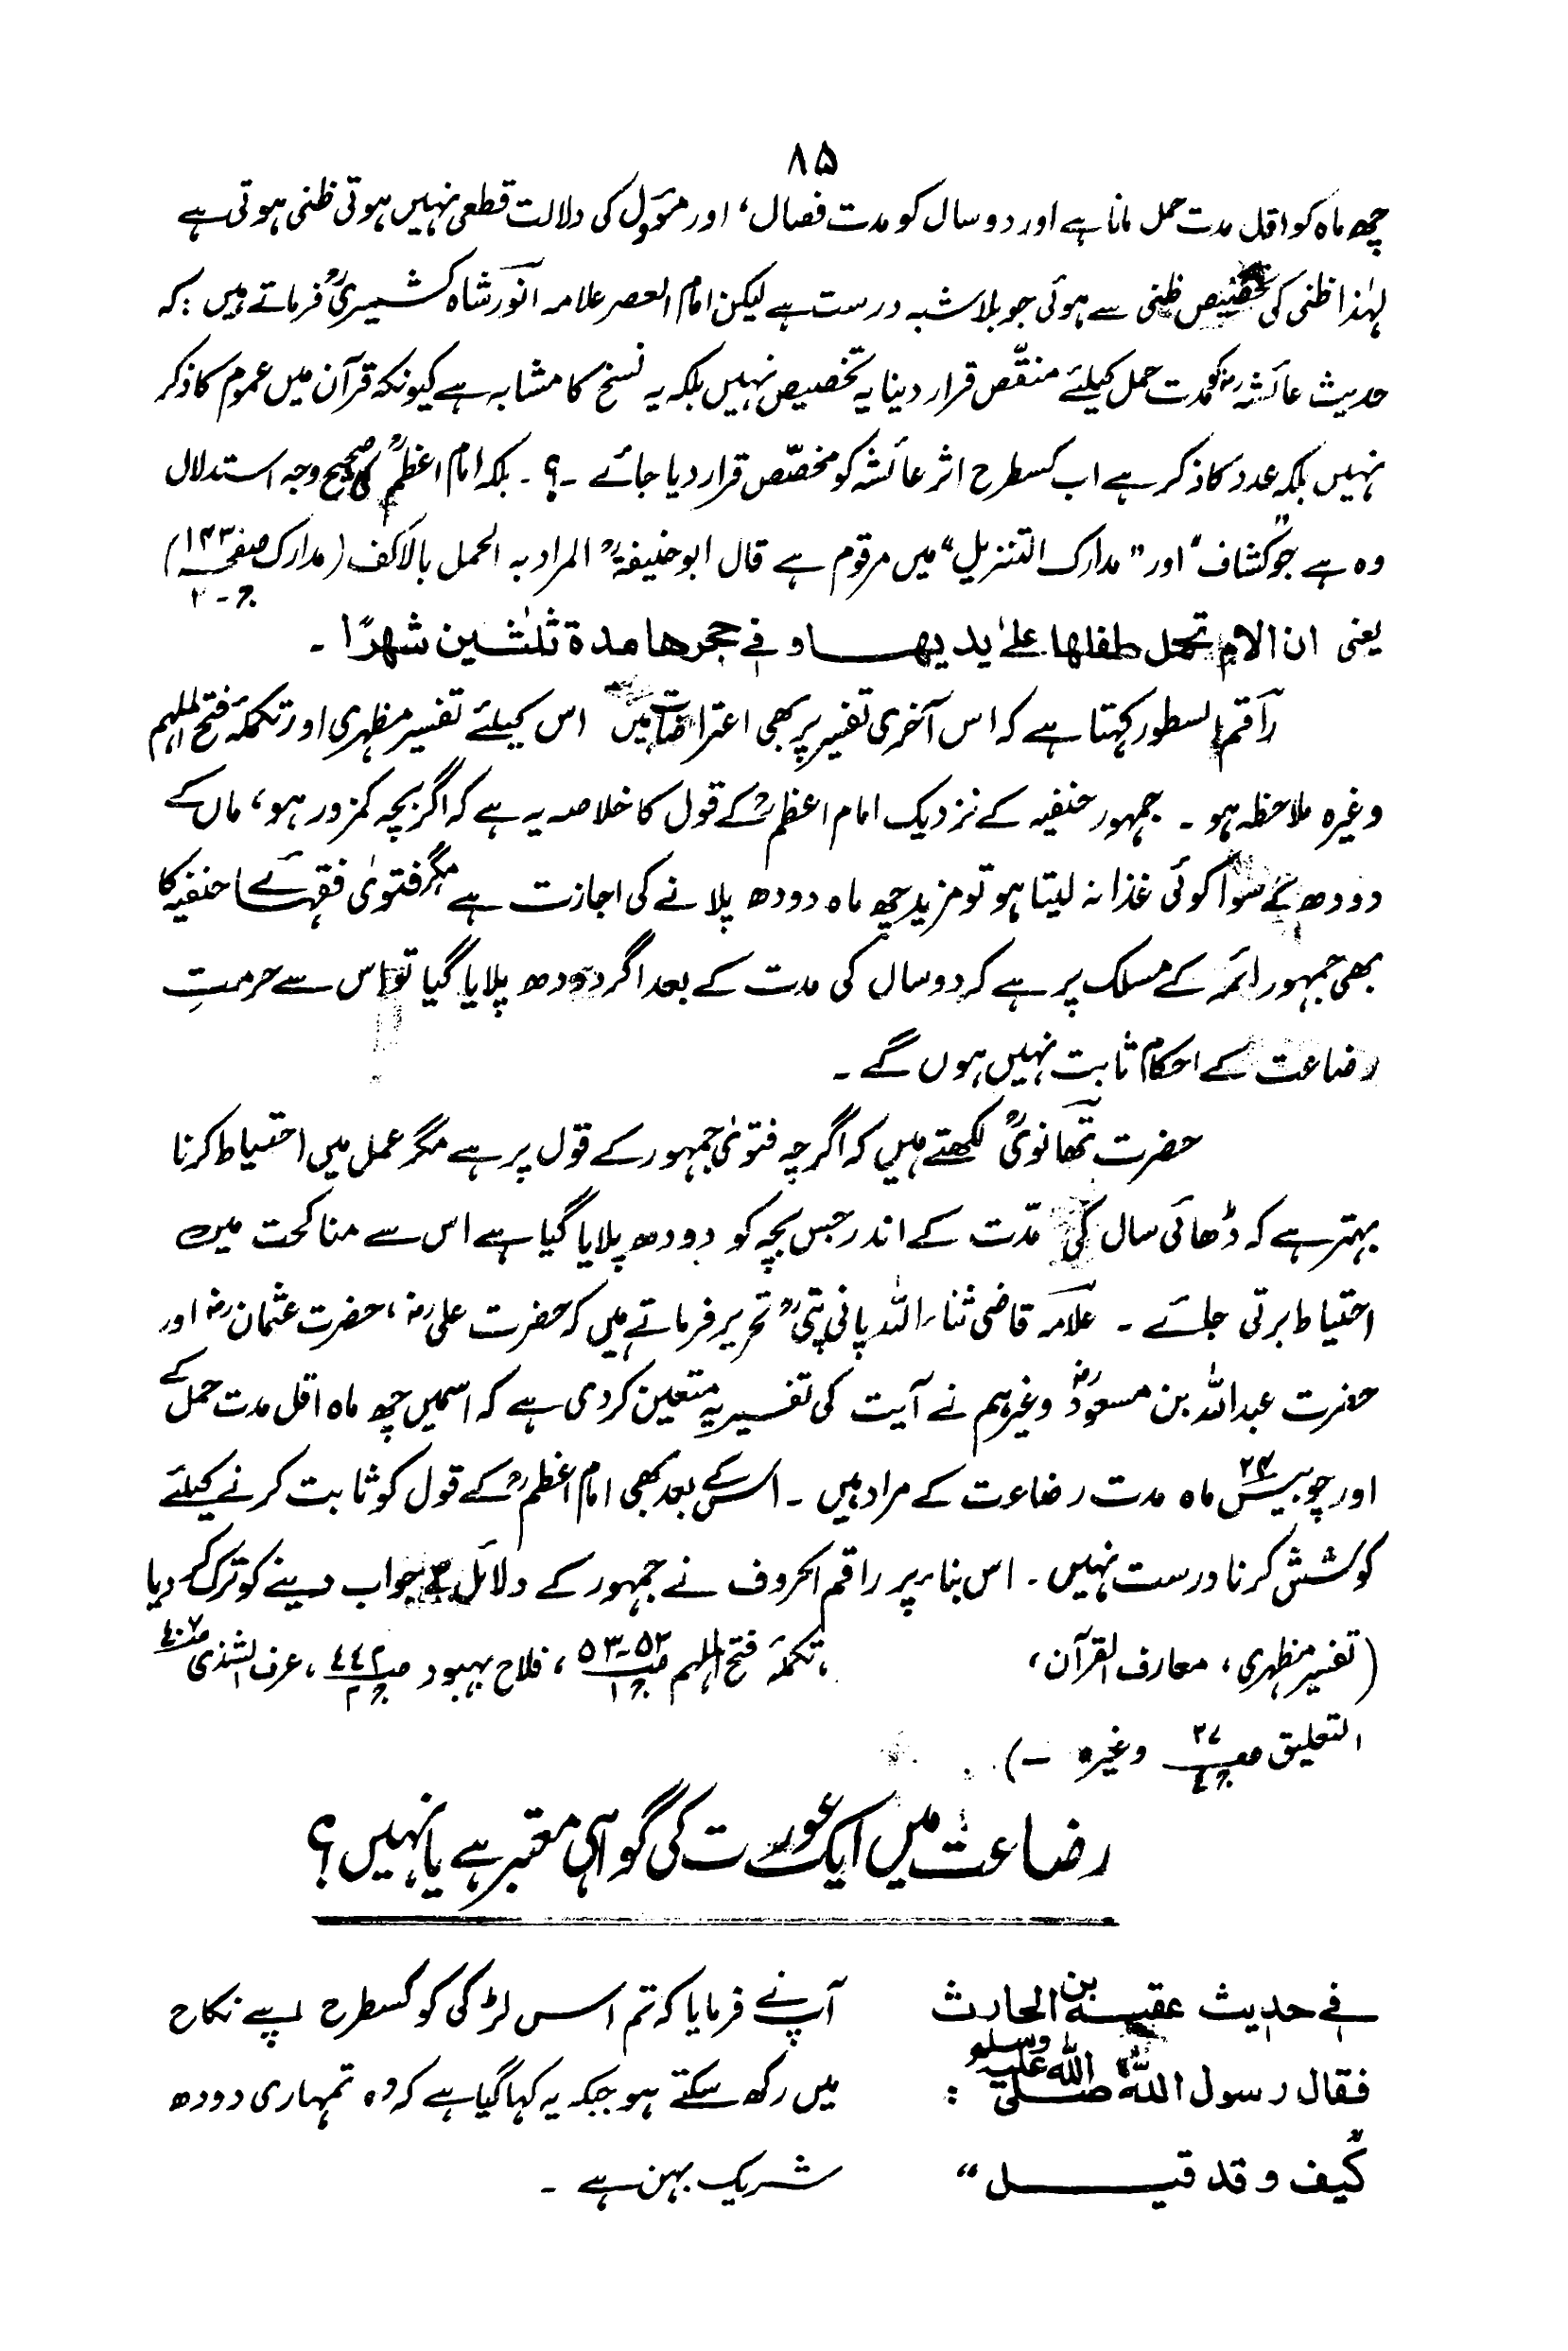 ۸۵
چھ ماہ کو اقل مدت حمل مانا ہے اور دو سال کو مدت فصال، اور مؤول کی دلالت قطعی نہیں ہوتی ظنی ہوتی ہے
لہٰذا ظنی کی تخصیص ظنی سے ہوئی جو بلا شبہ درست ہے لیکن امام العصر علامہ انور شاہ کشمیریؒ فرماتے ہیں : کہ
حدیث عائشہؓ کو مدت حمل کیلئے منقّص قرار دینا یہ تخصیص نہیں بلکہ یہ نسخ کا مشابہ ہے کیونکہ قرآن میں عموم کا ذکر
نہیں بلکہ عدد کا ذکر ہے اب کسطرح اثر عائشہ کو مخصّص قرار دیا جائے ۔؟ ۔ بلکہ امام اعظمؒ کی صحیح وجہ استدلال
وہ ہے جو "کشاف" اور "مدارک التنزیل" میں مرقوم ہے قال ابو حنیفۃؒ المراد بہ الحمل بالاکف (مدارک صفحہ ۱۴۳ ج-۴)
یعنی ان الام تحمل طفلها علیٰ یدیها و فی حجرها مدة ثلٰثین شهرًا ۔
راقم السطور کہتا ہے کہ اس آخری تفسیر پر بھی اعتراضات ہیں اس کیلئے تفسیر مظہری اور تکملۂ فتح الملہم
وغیرہ ملاحظہ ہو ۔ جمہور حنفیہ کے نزدیک امام اعظمؒ کے قول کا خلاصہ یہ ہے کہ اگر بچہ کمزور ہو، ماں کے
دودھ کے سوا کوئی غذا نہ لیتا ہو تو مزید چھ ماہ دودھ پلانے کی اجازت ہے مگر فتویٰ فقہائے احنفیہ کا
بھی جمہور ائمہ کے مسلک پر ہے کہ دو سال کی مدت کے بعد اگر دودھ پلایا گیا تو اس سے حرمتِ
رضاعت کے احکام ثابت نہیں ہوں گے ۔
حضرت تھانویؒ لکھتے ہیں کہ اگرچہ فتویٰ جمہور کے قول پر ہے مگر عمل میں احتیاط کرنا
بہتر ہے کہ ڈھائی سال کی مدّت کے اندر جس بچہ کو دودھ پلایا گیا ہے اس سے مناکحت میں
احتیاط برتی جائے ۔ علامہ قاضی ثناء اللہ پانی پتیؒ تحریر فرماتے ہیں کہ حضرت علیؓ، حضرت عثمانؓ اور
حضرت عبداللہ بن مسعودؓ وغیرہم نے آیت کی تفسیر یہ متعین کر دی ہے کہ اسمیں چھ ماہ اقل مدت حمل کے
اور چوبیس ۲۴ ماہ مدت رضاعت کے مراد ہیں ۔ اس کے بعد بھی امام اعظمؒ کے قول کو ثابت کرنے کیلئے
کوشش کرنا درست نہیں ۔ اس بناء پر راقم الحروف نے جمہور کے دلائل کے جواب دینے کو ترک کر دیا
(تفسیر مظہری، معارف القرآن، ،تکملۂ فتح الملہم صـ ۵۲-۵۳ ج۱، فلاح بہبود صـ ٤٤٢ ج۲، عرف الشذی صـ ٤٠٧
التعلیق صـ ۳۷ ج٤ وغیرہ ۔)
رضاعت میں ایک عورت کی گواہی معتبر ہے یا نہیں ؟
فی حدیث عقبہ بن الحارث
فقال رسول اللہ صلی اللہ علیہ وسلم :
"کیف و قد قیل"
آپ نے فرمایا کہ تم اس لڑکی کو کسطرح اپنے نکاح
میں رکھ سکتے ہو جبکہ یہ کہا گیا ہے کہ وہ تمہاری دودھ
شریک بہن ہے ۔